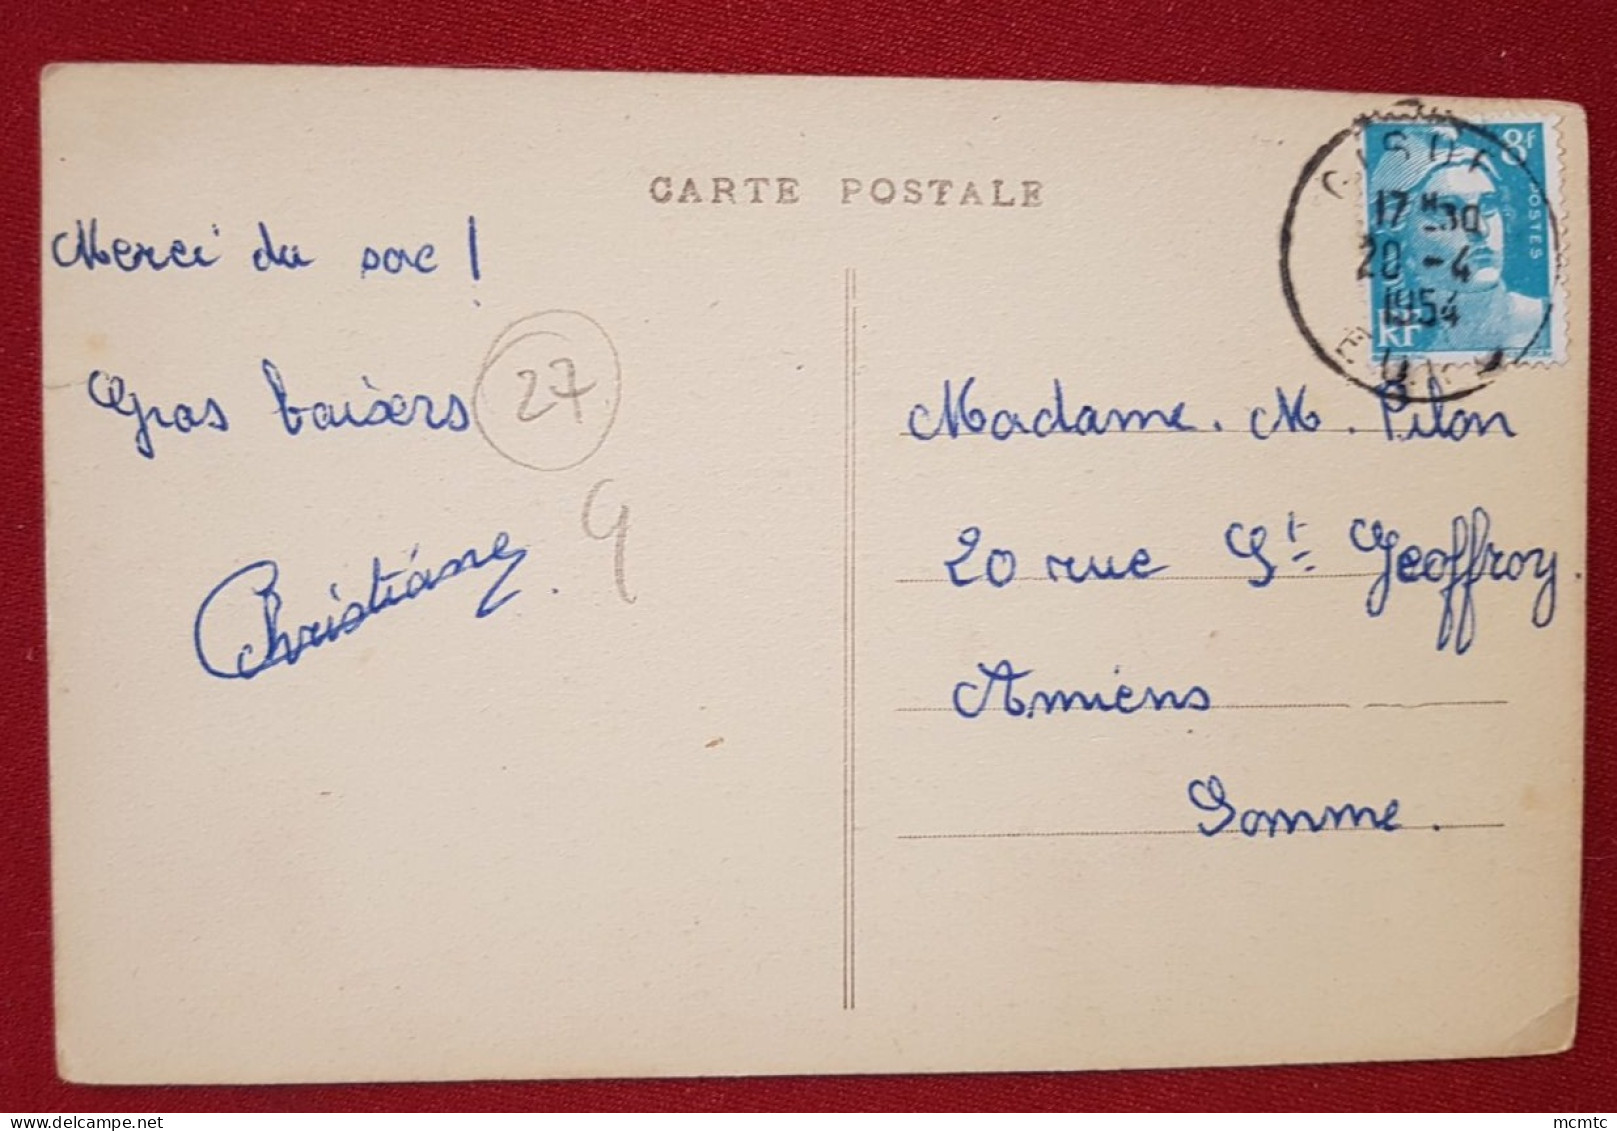 CARTE POSTALE
Merci du sac !
Gros baisers
27
Christiane.
8f
POSTES
RF
GISORS
17H30
20 -4
1954
EURE
Madame. M. Pilon
20 rue St Geoffroy.
Amiens
Somme.
mcmtc